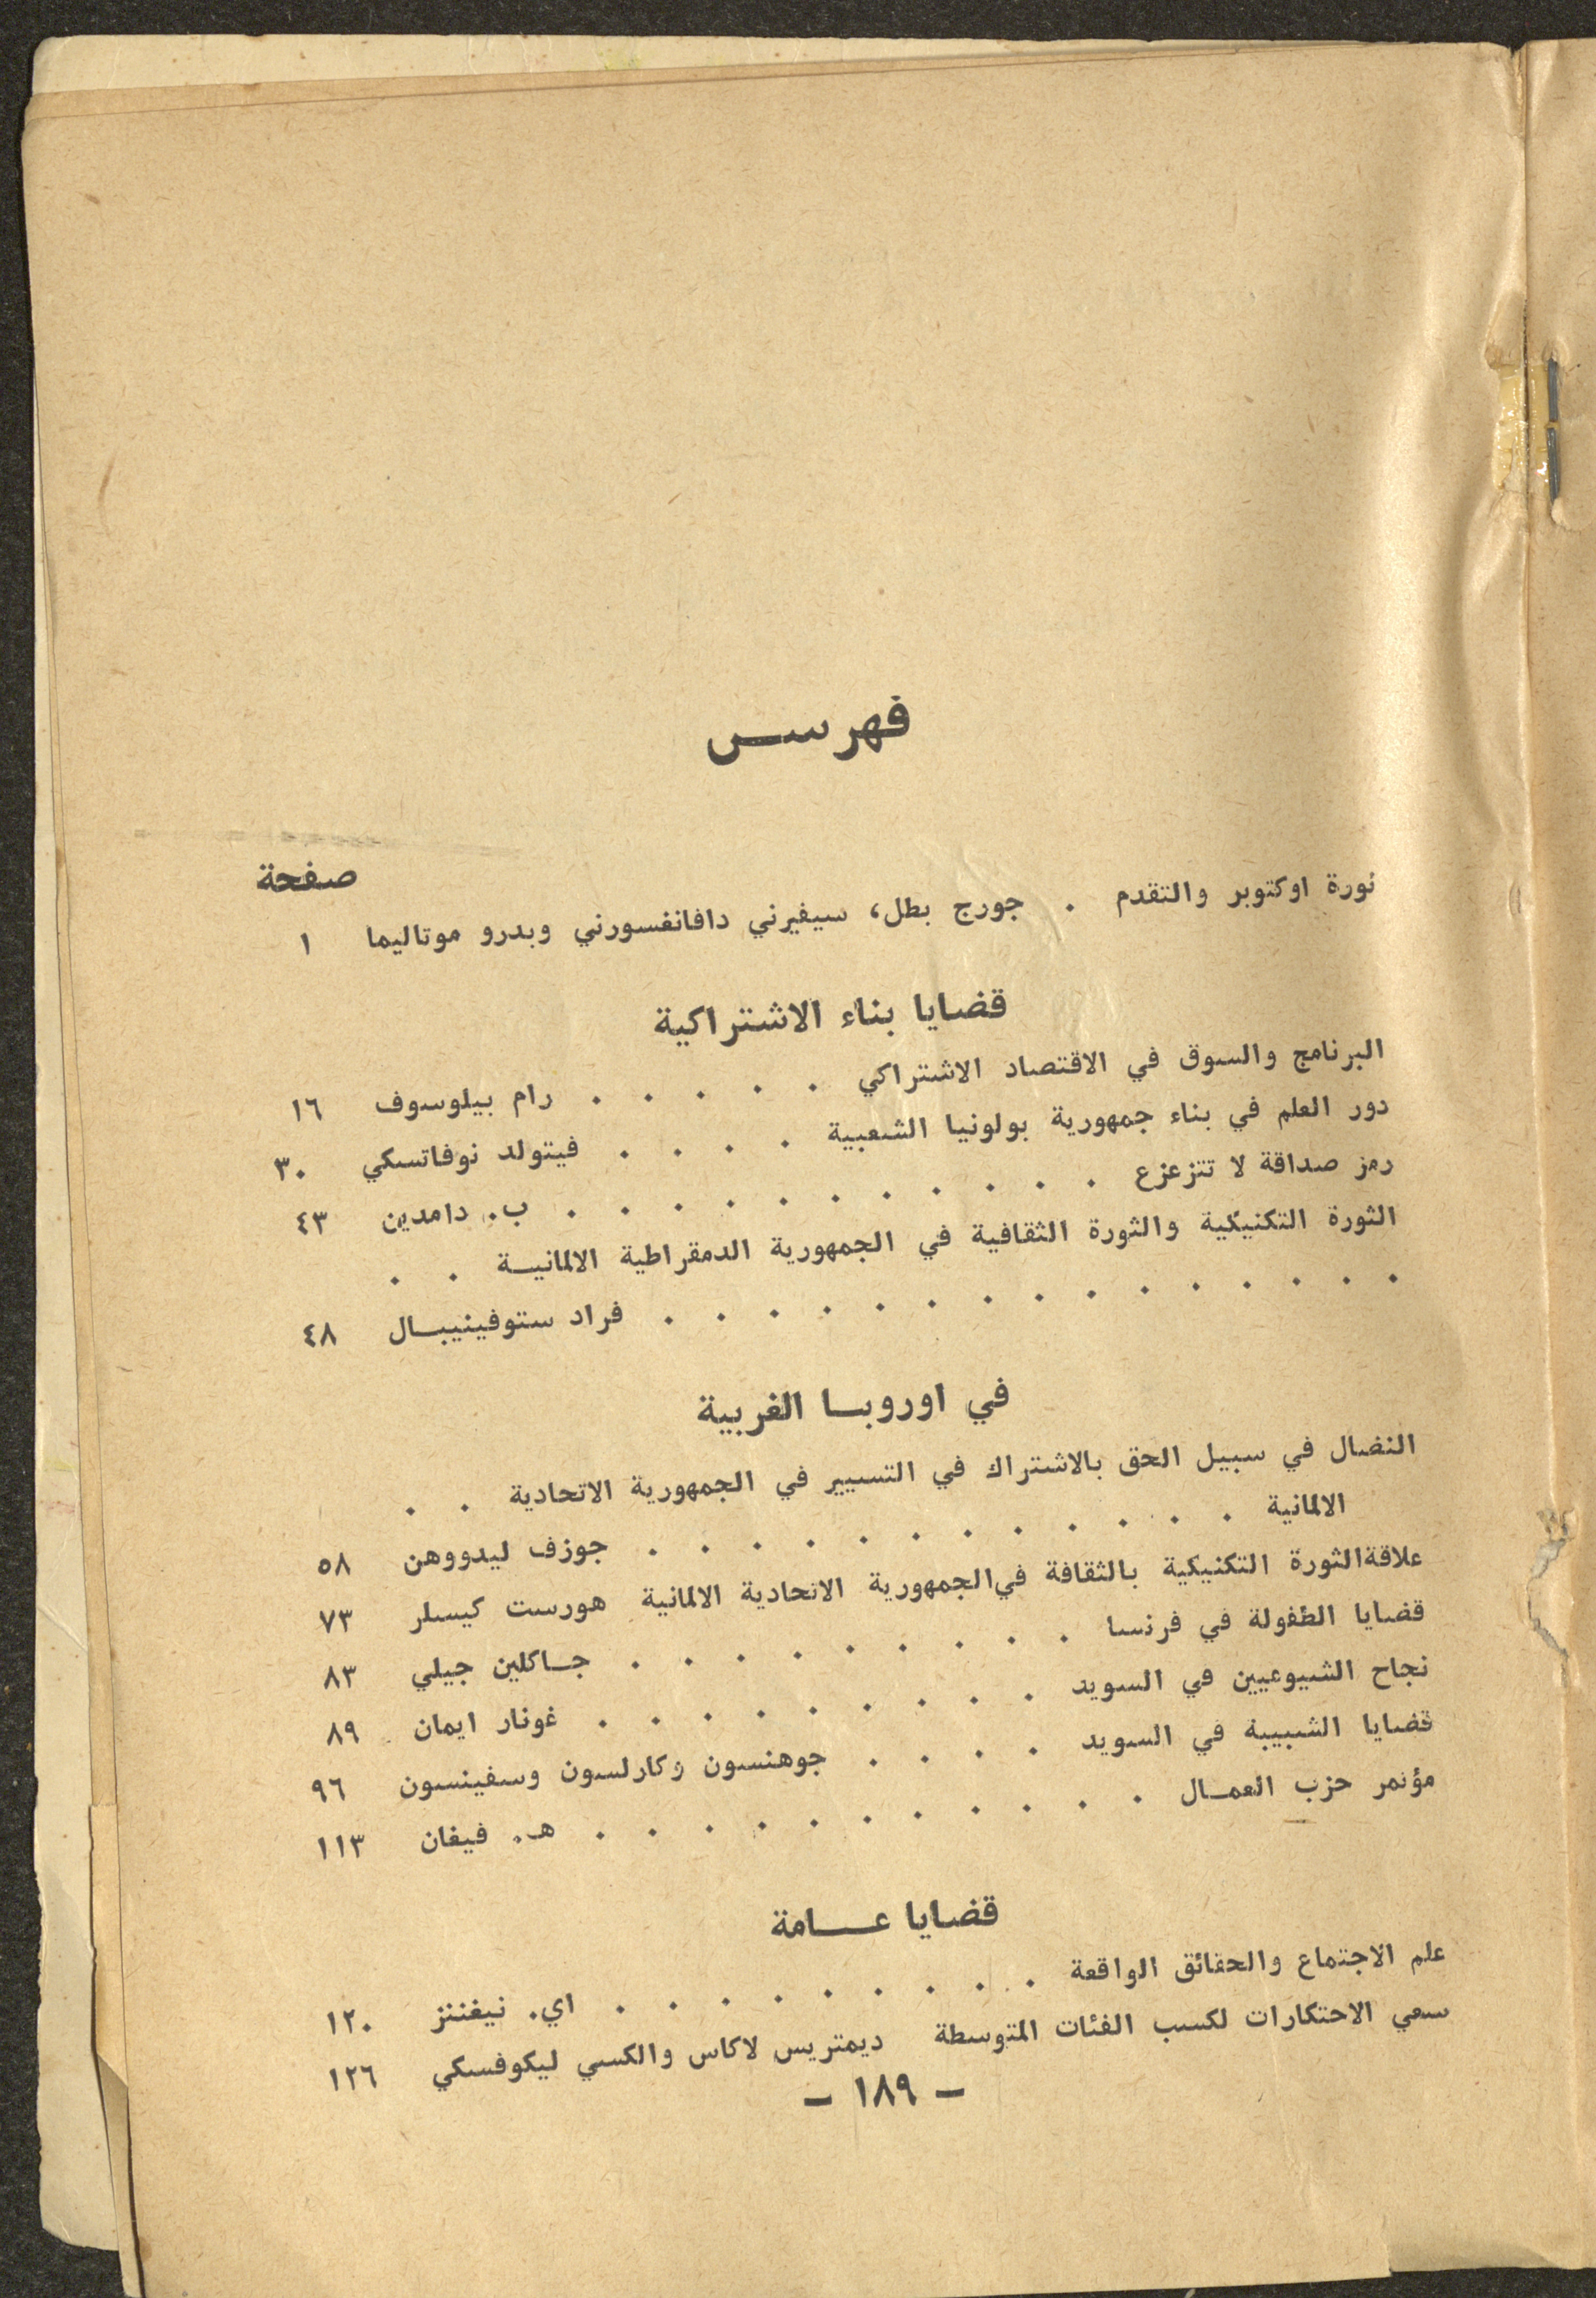 فهرس
صفحة
ثورة اوكتوبر والتقدم . جورج بطل، سيفيرني دافانفسورني وبدرو موتاليما ١
قضايا بناء الاشتراكية
البرنامج والسوق في الاقتصاد الاشتراكي . . . . . رام بيلوسوف ١٦
دور العلم في بناء جمهورية بولونيا الشعبية . . . . فيتولد نوفاتسكي ٣٠
رمز صداقة لا تتزعزع . . . . . . . . . . . ب. دامدين ٤٣
الثورة التكنيكية والثورة الثقافية في الجمهورية الدمقراطية الالمانية . .
. . . . . . . . . . . . . . . فراد ستوفينيبال ٤٨
في اوروبا الغربية
النضال في سبيل الحق بالاشتراك في التسيير في الجمهورية الاتحادية . .
الالمانية . . . . . . . . . . . . جوزف ليدووهن ٥٨
علاقة الثورة التكنيكية بالثقافة في الجمهورية الاتحادية الالمانية هورست كيسلر ٧٣
قضايا الطفولة في فرنسا . . . . . . . . . جاكلين جيلي ٨٣
نجاح الشيوعيين في السويد . . . . . . . . . غونار ايمان ٨٩
قضايا الشبيبة في السويد . . . . جوهنسون وكارلسون وسفينسون ٩٦
مؤتمر حزب العمال . . . . . . . . . . . هـ. فيغان ١١٣
قضايا عامة
علم الاجتماع والحقائق الواقعة . . . . . . . . . اي. نيغننز ١٢٠
سعي الاحتكارات لكسب الفئات المتوسطة ديمتريس لاكاس والكسي ليكوفسكي ١٢٦
– ١٨٩ –